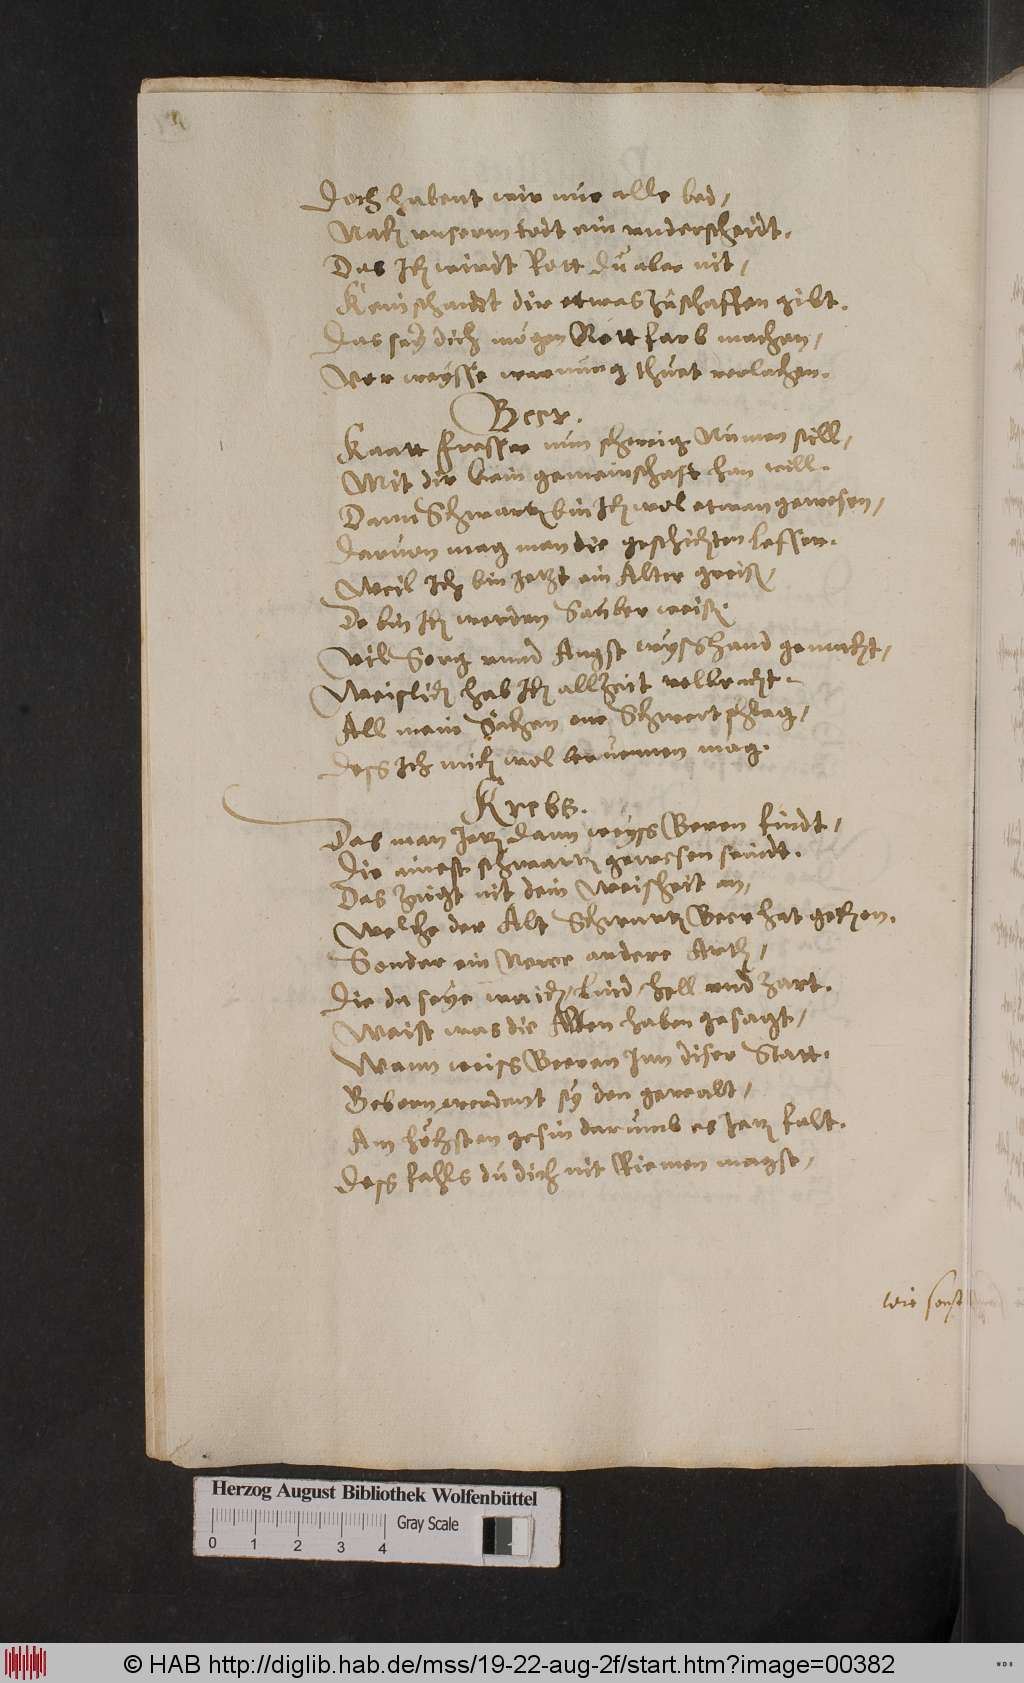 Doch habent wir nur alle bed /
Nach unserm todt ein underscheidt.
Das Ich wirdt Rott du aber nit /
Kein schandt dir etwas zuschaffen gibt.
Das sey dich mögen Rott farb machen /
Vor weysse warnung thust verlachen.
Beer.
fresser nun schweig Numen still /
Mit dir kein gemeinschafft han will.
Dann Schwartz bin Ich wol etwan gewesen /
Darvon mag man die geschichten lessen.
Weil Ich bin Jetzt ein Alter greiß /
Do bin Ich worden Sauber weiß.
Vil Sorg unnd Angst wysshaud gemacht /
Weislich hab Ich allzeit volbracht.
All meine Sachen one Schwert schlag /
Dess Ich mich wol beruemen mag.
Krebs.
Das man Jetz dann weyss Beren findt /
Die ainest schwartz gewesen seindt.
Das zeigt nit dein Weisheit an,
Welche der Alt Schwartz Beer hat gethon.
Sonder ein Newe andere Arth /
Die da seye waich / Lind / hell und zart.
Weist was die Alten haben gesagt /
Wann weiss Beeren Inn diser Statt.
Gebern werdent sy den gewalt /
Am höchsten gesin darumb es Jetz falt.
Dess fahls du dich nit Riemen magst /
wie sonst
Herzog August Bibliothek Wolfenbüttel
Gray Scale
0 1 2 3 4
© HAB http://diglib.hab.de/mss/19-22-aug-2f/start.htm?image=00382